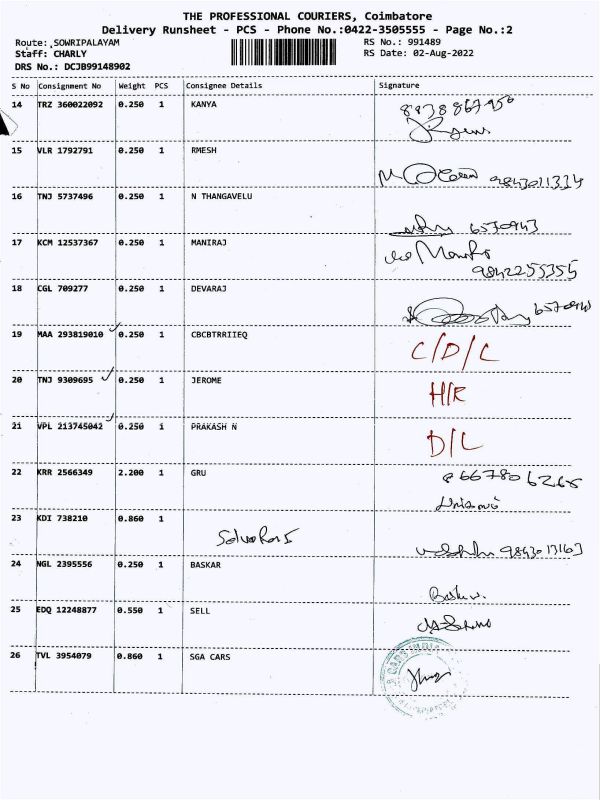 THE PROFESSIONAL COURIERS, Coimbatore
Delivery Runsheet - PCS - Phone No.:0422-3505555 - Page No.:2
Route: SOWRIPALAYAM RS No.: 991489
Staff: CHARLY RS Date: 02-Aug-2022
DRS No.: DCJB99148902
S No Consignment No Weight PCS Consignee Details Signature
14 TRZ 360022092 0.250 1 KANYA
15 VLR 1792791 0.250 1 RMESH
9843011334
16 TNJ 5737496 0.250 1 N THANGAVELU
6570943
17 KCM 12537367 0.250 1 MANIRAJ
9842255355
18 CGL 709277 0.250 1 DEVARAJ
6570943
19 MAA 293819010 0.250 1 CBCBTRRIIEQ C/D/L
20 TNJ 9309695 0.250 1 JEROME H/R
21 VPL 213745042 0.250 1 PRAKASH N D/L
22 KRR 2566349 2.200 1 GRU
23 KDI 738210 0.860 1
9843013163
24 NGL 2395556 0.250 1 BASKAR
25 EDQ 12248877 0.550 1 SELL
26 TVL 3954079 0.860 1 SGA CARS